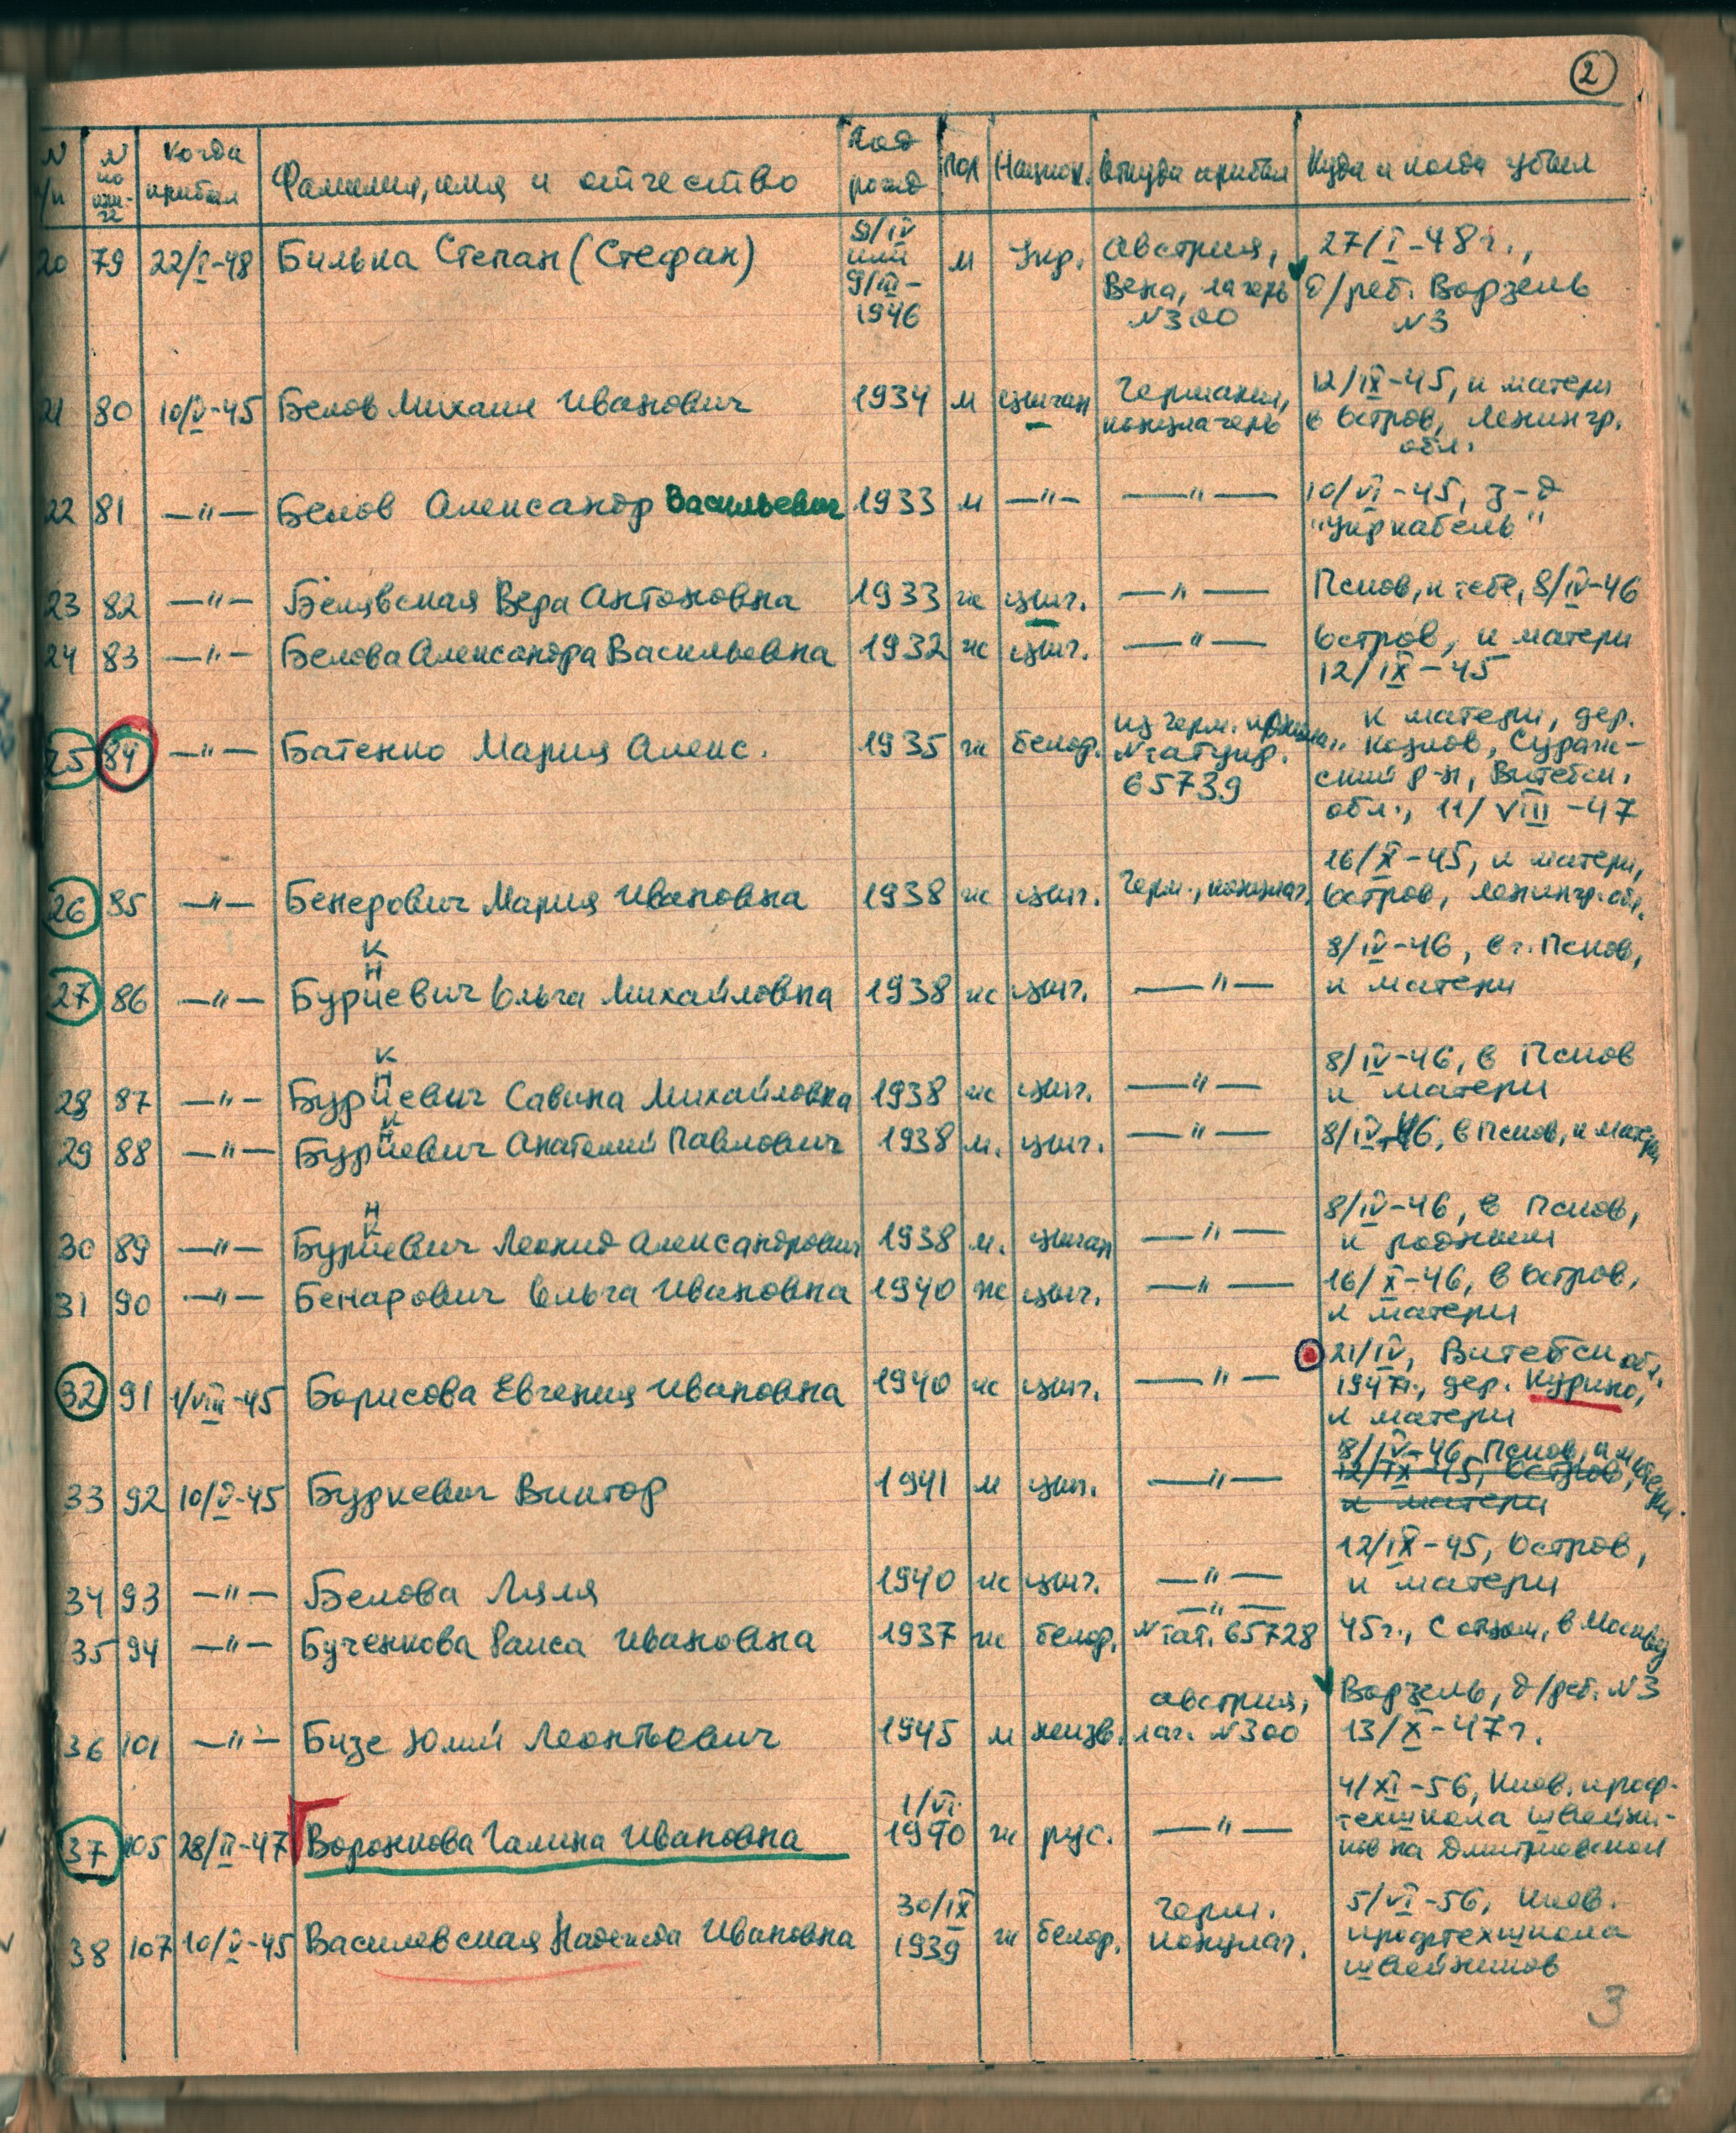 2
N п/п | N по кни-ге | Когда прибыл | Фамилия, имя и отчество | Год рожд | Пол | Национ. | Откуда прибыл | Куда и когда убыл
20 | 79 | 22/I-48 | Билька Степан (Стефан) | 9/IV или 9/III-1946 | м | Укр. | Австрия, Вена, лагерь N300 | 27/I-48г., д/реб. Ворзель N3
21 | 80 | 10/V-45 | Белов Михаил Иванович | 1934 | м | цыган | Германия, концлагерь | 12/IX-45, к матери в Остров, Ленингр. обл.
22 | 81 | —"— | Белов Александр Васильевич | 1933 | м | —"— | —"— | 10/VI-45, з-д "Укркабель"
23 | 82 | —"— | Белявская Вера Антоновна | 1933 | ж | цыг. | —"— | Псков, к тёте, 8/IV-46
24 | 83 | —"— | Белова Александра Васильевна | 1932 | ж | цыг. | —"— | Остров, к матери 12/IX-45
25 | 84 | —"— | Батенко Мария Алекс. | 1935 | ж | белор. | из Герм. N татуир. 65739 | к матери, дер. Козлов, Сураж-ский р-н, Витебск. обл., 11/VIII-47
26 | 85 | —"— | Бенерович Мария Ивановна | 1938 | ж | цыг. | Герм., концлаг. | 16/X-45, к матери, Остров, Ленингр. обл.
к
н
27 | 86 | —"— | Бурцевич Ольга Михайловна | 1938 | ж | цыг. | —"— | 8/IV-46, в г. Псков, к матери
к
н
28 | 87 | —"— | Бурцевич Савина Михайловна | 1938 | ж | цыг. | —"— | 8/IV-46, в Псков к матери
к
н
29 | 88 | —"— | Бурцевич Анатолий Павлович | 1938 | м. | цыг. | —"— | 8/IV-46, в Псков, к матери
н
к
30 | 89 | —"— | Бурцевич Леонид Александрович | 1938 | м. | цыган | —"— | 8/IV-46, в Псков, к родным
31 | 90 | —"— | Бенарович Ольга Ивановна | 1940 | ж | цыг. | —"— | 16/X-46, в Остров, к матери
32 | 91 | 1/VIII-45 | Борисова Евгения Ивановна | 1940 | ж | цыг. | —"— | 21/IV, Витебск обл. 1947г., дер. Курино, к матери
33 | 92 | 10/V-45 | Буркевич Виктор | 1941 | м | цыг. | —"— | 8/IV-46, Псков, к матери. 12/IX-45, Остров, к матери
34 | 93 | —"— | Белова Ляля | 1940 | ж | цыг. | —"— | 12/IX-45, Остров, к матери
35 | 94 | —"— | Бученкова Раиса Ивановна | 1937 | ж | белор. | —"— N тат. 65728 | 45г., с отцом, в Москву
36 | 101 | —"— | Бизе Юлий Леонтьевич | 1945 | м | неизв. | Австрия, лаг. N300 | Ворзель, д/реб. N3 13/X-47г.
37 | 105 | 28/II-47 | Воронкова Галина Ивановна | 1/VI 1940 | ж | рус. | —"— | 4/XI-56, Киев. проф-техшкола швейни-ков на Дмитриевской
38 | 107 | 10/V-45 | Василевская Надежда Ивановна | 30/IX 1939 | ж | белор. | Герм. концлаг. | 5/VI-56, Киев. профтехшкола швейников
3